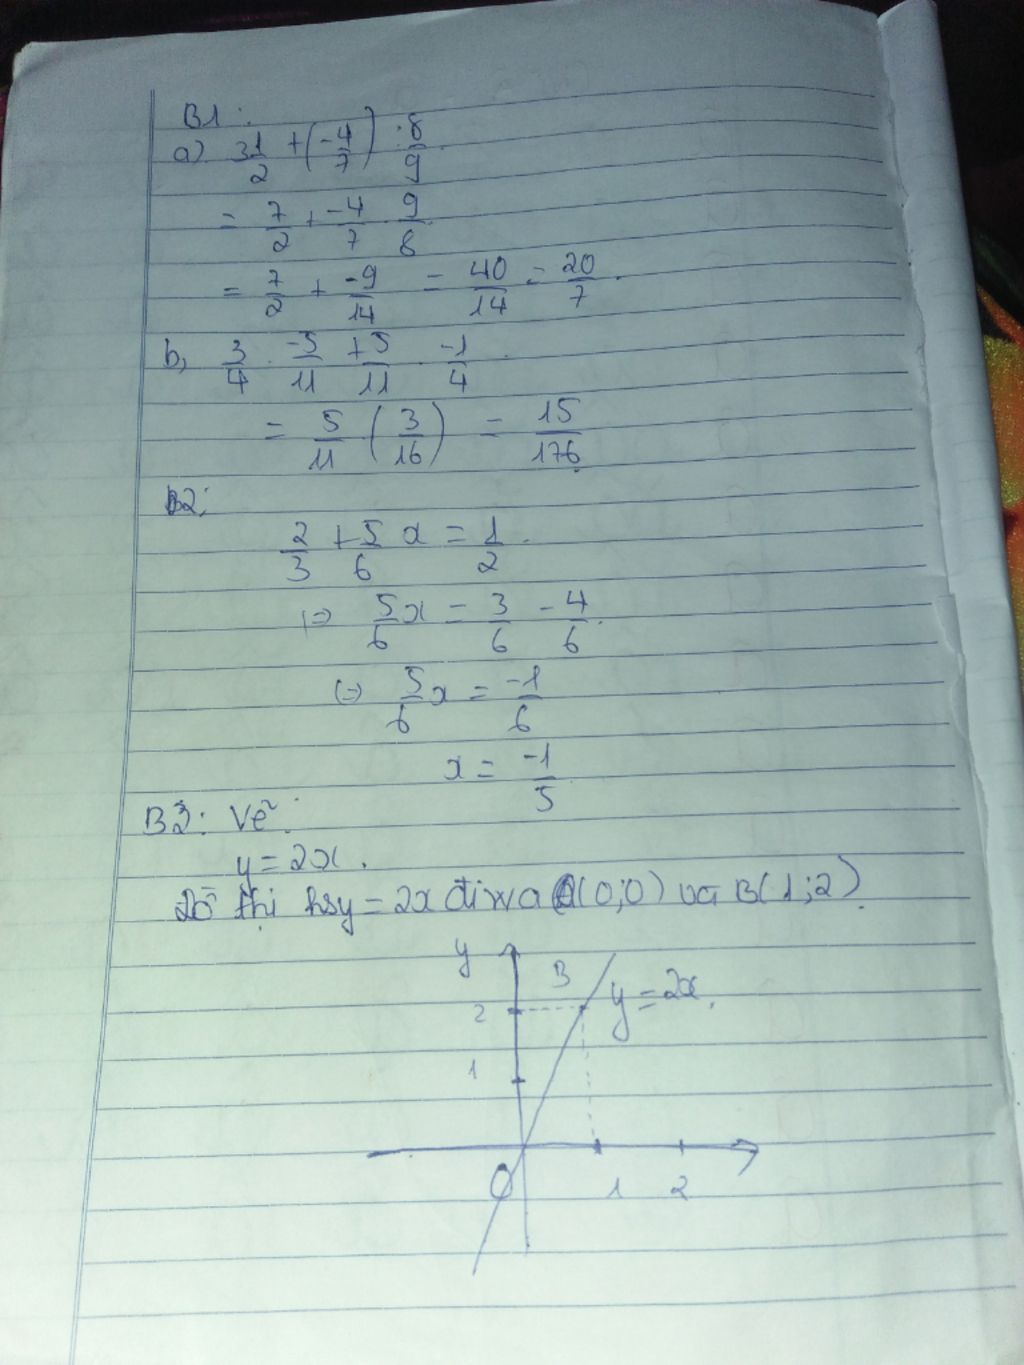 B1:
a) 3 1/2 + (-4/7) : 8/9
= 7/2 + -4/7 . 9/8
= 7/2 + -9/14 = 40/14 = 20/7.
b, 3/4 . -5/11 + 5/11 . -1/4
= 5/11 (3/16) = 15/176
B2:
2/3 + 5/6 x = 1/2.
(=) 5/6 x = 3/6 - 4/6.
(=) 5/6 x = -1/6
x = -1/5
B3: Vẽ:
y = 2x.
thị hsy = 2x (0;0) và B(1;2)
y
B
y = 2x.
2
1
O 1 2